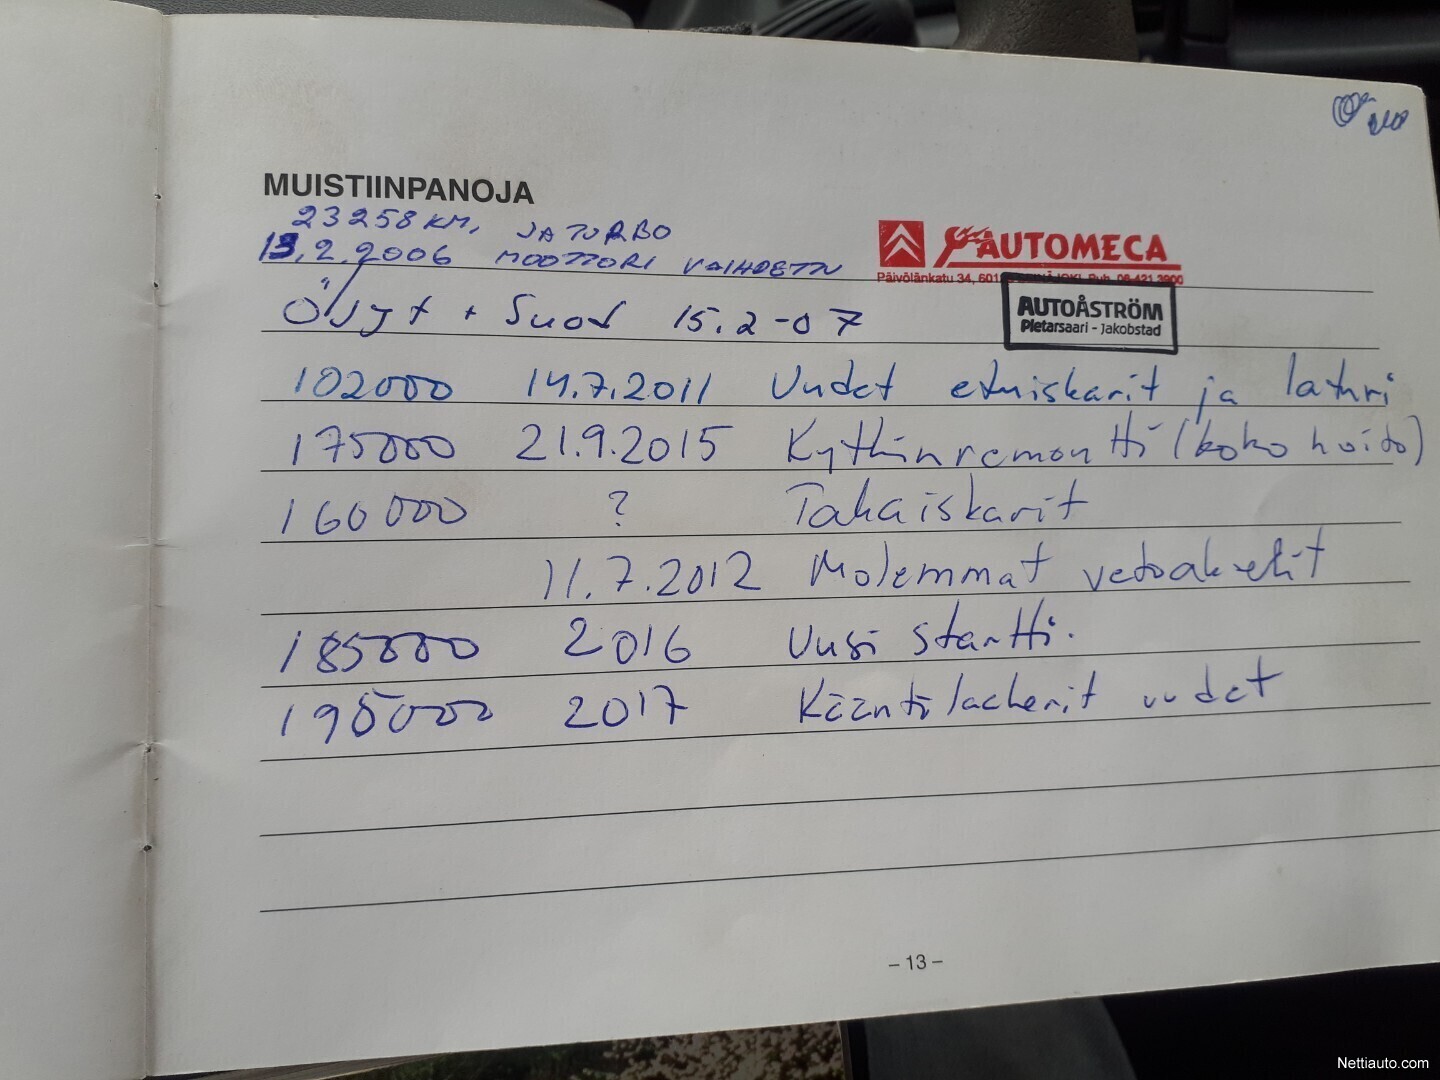 MUISTIINPANOJA
23258 KM, JA TURBO
13.2.2006 MOOTTORI VAIHDETTU
AUTOMECA
Päivölänkatu 34, 601 Puh. 06-421 3900
Öljyt + Suod 15.2-07
AUTOÅSTRÖM
Pietarsaari - Jakobstad
102000 14.7.2011 Uudet etuiskarit ja laturi
175000 21.9.2015 Kytkinremontti (koko hoito)
160000 ? Takaiskarit
11.7.2012 Molemmat vetoakselit
185000 2016 Uusi startti.
195000 2017 Kääntölaakerit uudet
- 13 -
Nettiauto.com